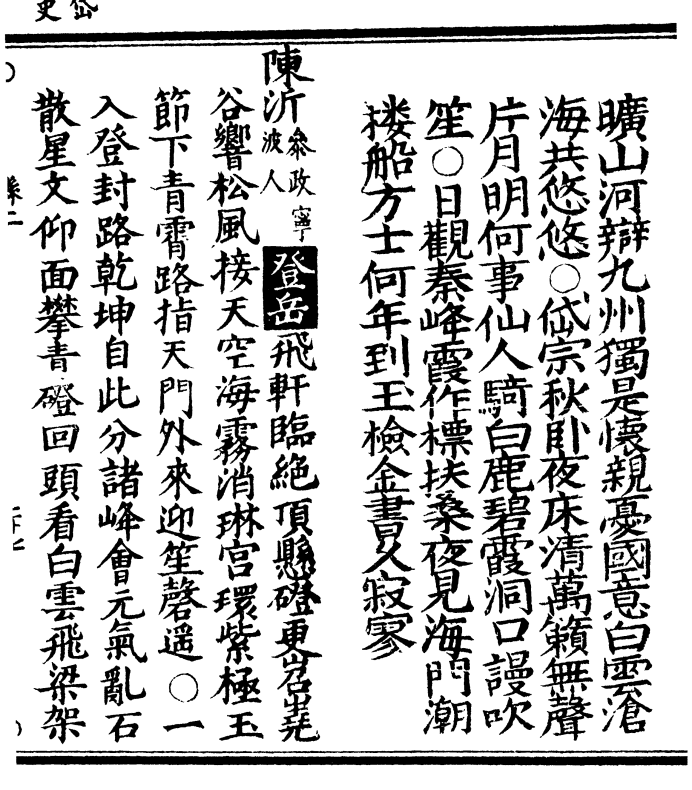 曠山河辯九州獨是懷親憂國意白雲滄
海共悠悠〇岱宗秋卧夜床清萬籟無聲
片月明何事仙人騎白鹿碧霞洞口謾吹
笙〇日觀秦峰霞作標扶桑夜見海門潮
楼船方士何年到玉檢金書久寂寥
陳沂參政寧波人登岳飛軒臨絶頂懸磴更岧嶤
谷響松風接天空海霧消琳宫環紫極玉
節下青霄路指天門外來迎笙磬遥〇一
入登封路乾坤自此分諸峰會元氣亂石
散星文仰面攀青磴回頭看白雲飛梁架